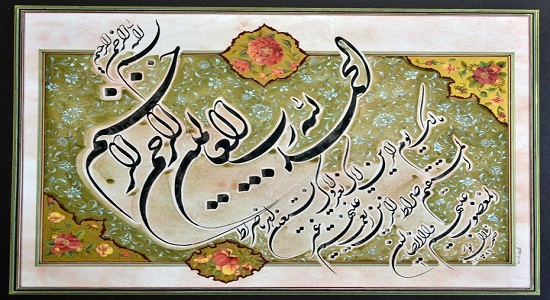 بسم الله الرحمن الرحیم
الحمد لله رب العالمین الرحمن الرحیم
مالک یوم الدین ایاک نعبد و ایاک نستعین اهدنا الصراط
المستقیم صراط الذین انعمت علیهم غیر
المغضوب علیهم
ولا الضالین